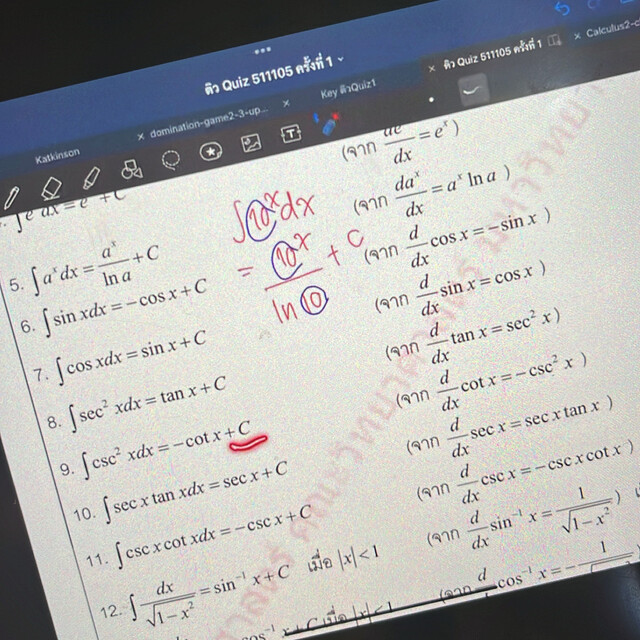 ติว Quiz 511105 ครั้งที่ 1
Katkinson
× domination-game2-3-up...
× Key ติวQuiz1
× ติว Quiz 511105 ครั้งที่ 1
× Calculus2-c
∫e dx = e + C (จาก de/dx = eˣ)
5. ∫aˣdx = aˣ/ln a + C (จาก daˣ/dx = aˣ ln a)
∫10ˣdx
= 10ˣ/ln 10 + C
6. ∫sin xdx = −cos x + C (จาก d/dx cos x = −sin x)
7. ∫cos xdx = sin x + C (จาก d/dx sin x = cos x)
8. ∫sec² xdx = tan x + C (จาก d/dx tan x = sec² x)
9. ∫csc² xdx = −cot x + C (จาก d/dx cot x = −csc² x)
10. ∫sec x tan xdx = sec x + C (จาก d/dx sec x = sec x tan x)
11. ∫csc x cot xdx = −csc x + C (จาก d/dx csc x = −csc x cot x)
12. ∫dx/√(1−x²) = sin⁻¹ x + C เมื่อ |x| < 1 (จาก d/dx sin⁻¹ x = 1/√(1−x²))
cos⁻¹ x + C เมื่อ |x| < 1 (จาก d cos⁻¹ x = −1